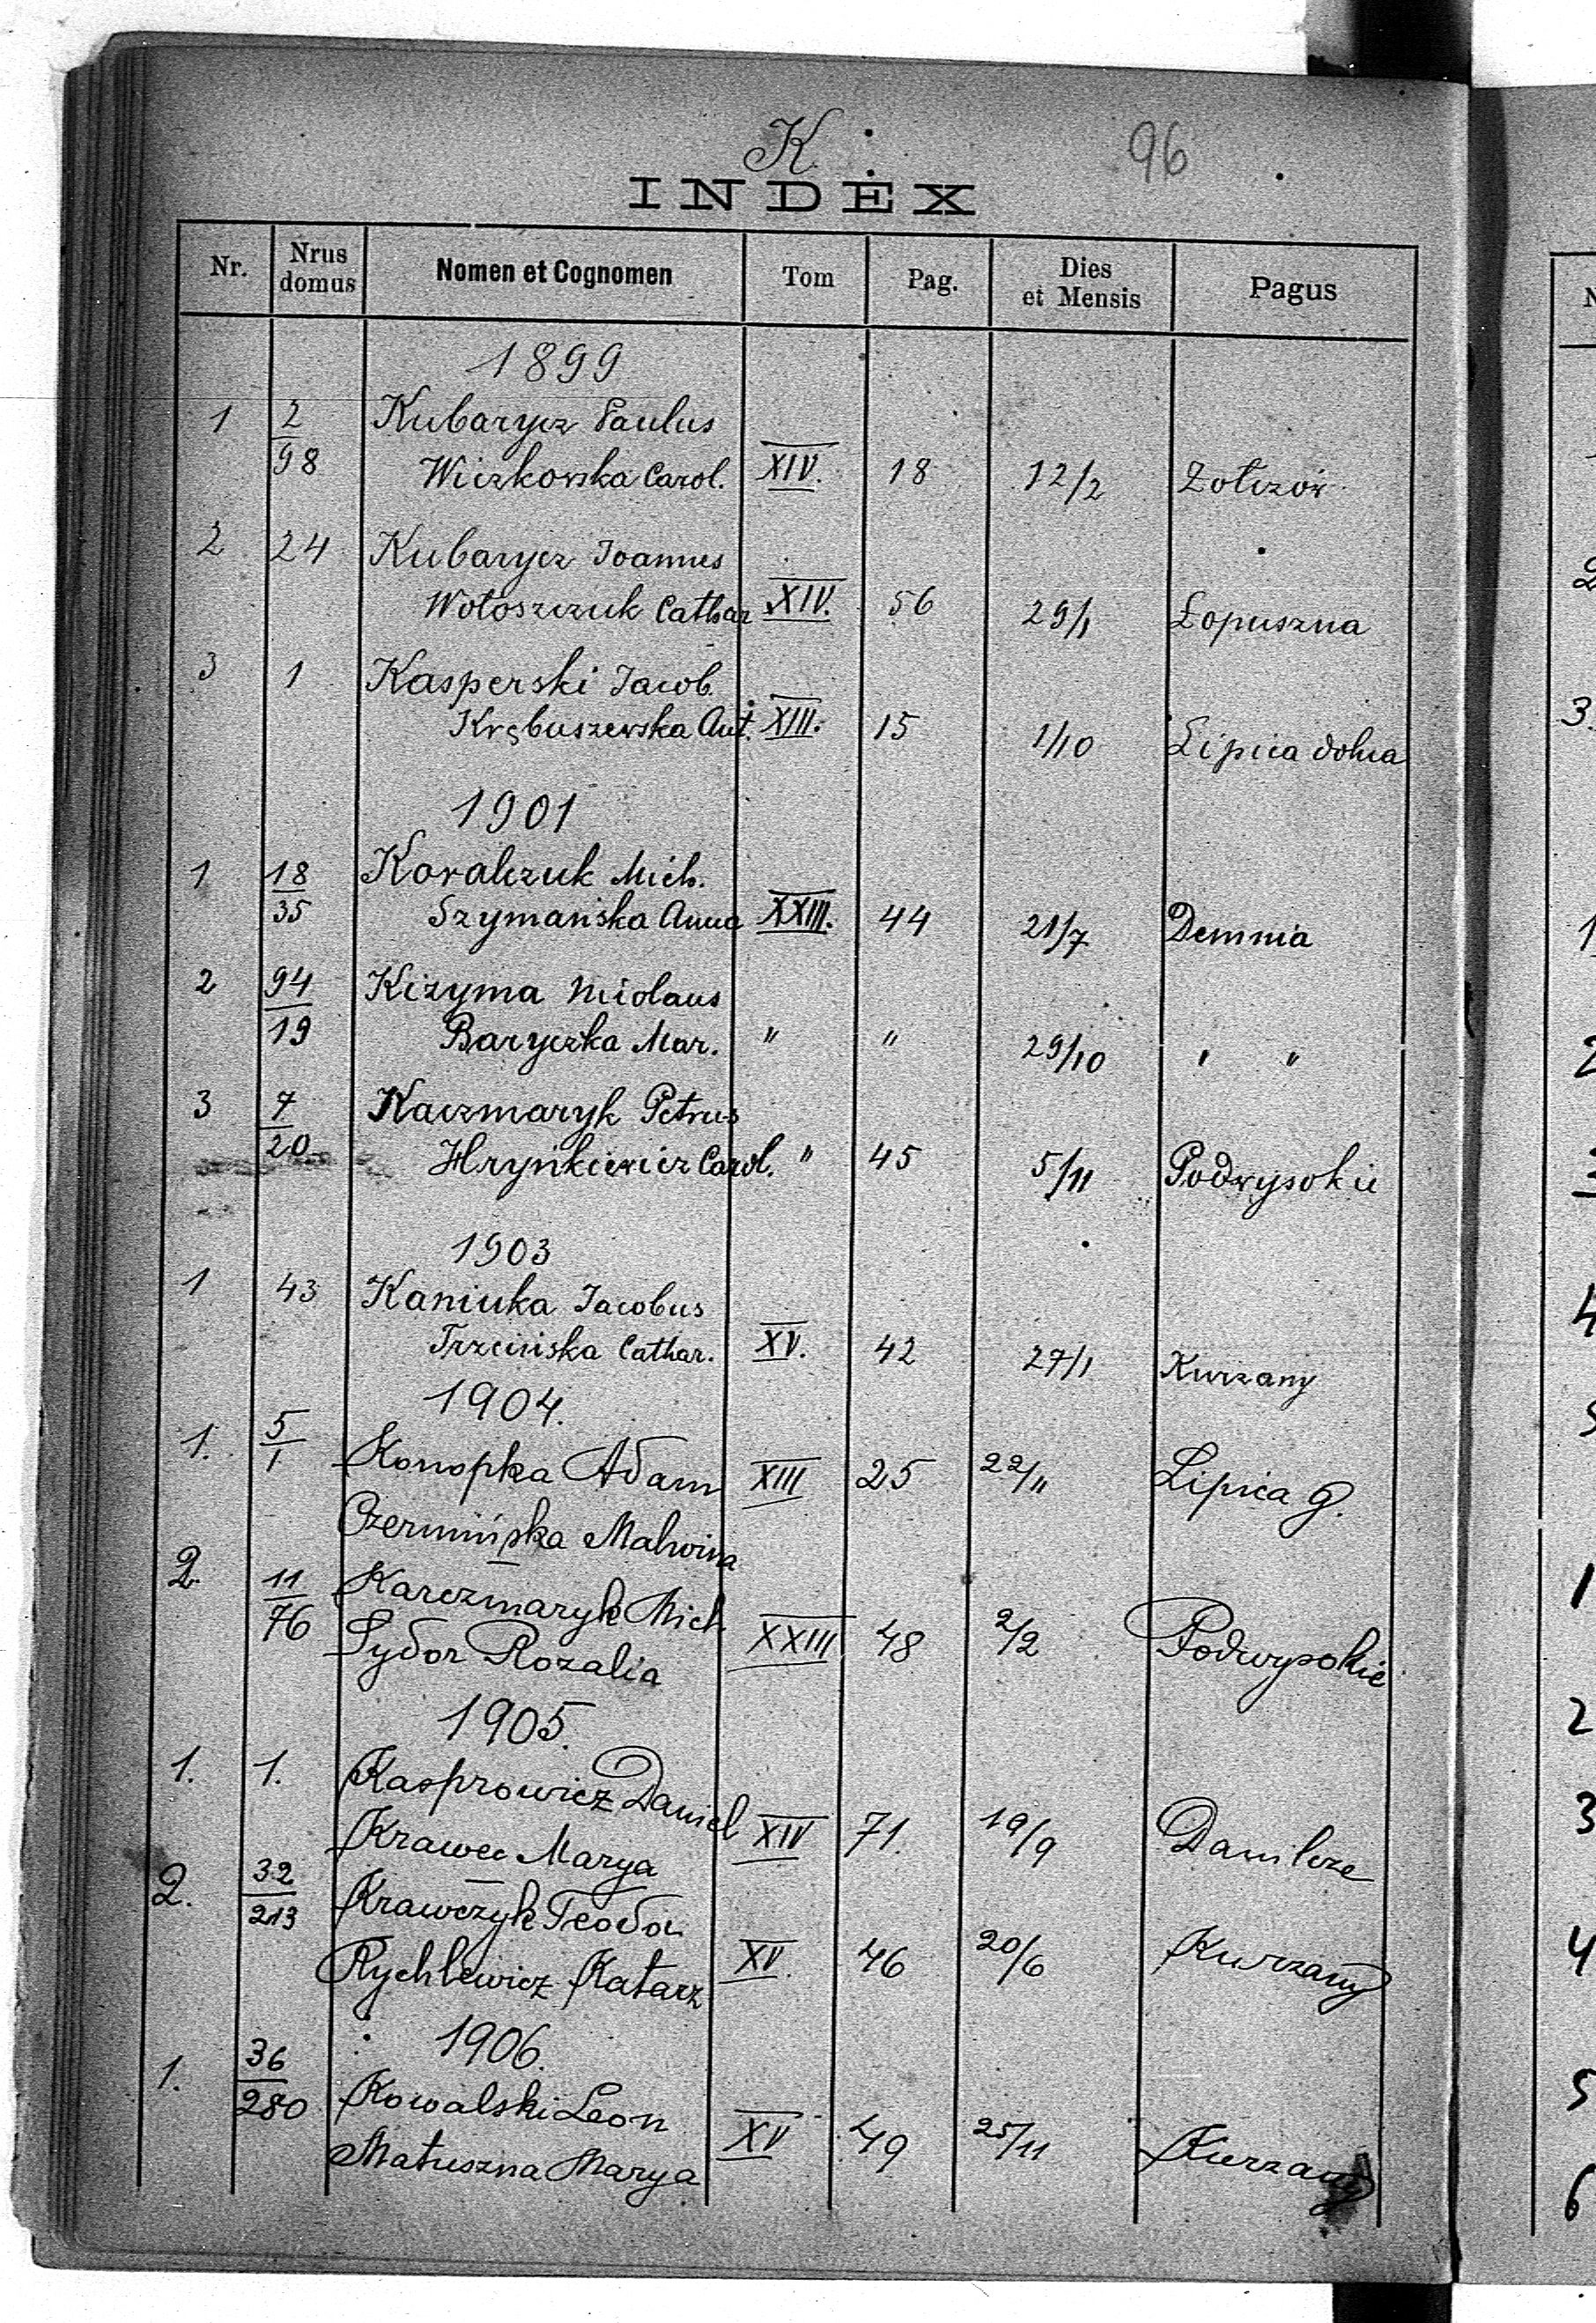 K.
96
INDEX
Nr. Nrus domus Nomen et Cognomen Tom Pag. Dies et Mensis Pagus
1899
1 2 Kubarycz Paulus
98 Wiczkowska Carol. XIV. 18 12/2 Zołczów
2 24 Kubarycz Joannes
Wołoszczuk Cathar XIV. 56 29/1 Łopuszna
3 1 Kasperski Jacob.
Krębuszewska Ant. XIII. 15 1/10 Lipica dolna
1901
1 18 Kowalczuk Mich.
35 Szymańska Anna XXIII. 44 21/7 Demnia
2 94 Kiżyma Nicolaus
19 Baryczka Mar. " " 29/10 " "
3 7 Kaczmaryk Petrus
20 Hryńkiewicz Carol. " 45 5/11 Podwysokie
1903
1 43 Kaniuka Jacobus
Trzcińska Cathar. XV. 42 27/1 Kurzany
1904.
1. 5/1 Konopka Adam XIII 25 22/11 Lipica G.
Czermińska Malwina
2. 11 Karczmaryk Mich.
76 Sydor Rozalia XXIII 48 2/2 Podwysokie
1905.
1. 1. Kasprowicz Daniel
Krawec Marya XIV 71. 19/9 Danilcze
2. 32 Krawczyk Teodor
213 Rychlewicz Katarz XV. 46 20/6 Kurzany
1906.
1. 36 Kowalski Leon
280 Matuszna Marya XV 49 25/11 Kurzany